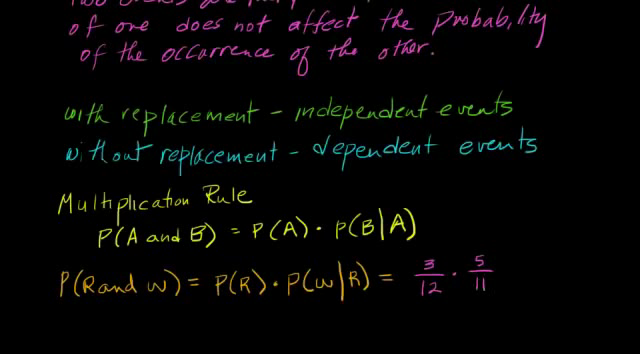 of one does not affect the probability
of the occurrence of the other.
with replacement - independent events
without replacement - dependent events
Multiplication Rule
P(A and B) = P(A) · P(B|A)
P(R and W) = P(R) · P(W|R) = 3/12 · 5/11